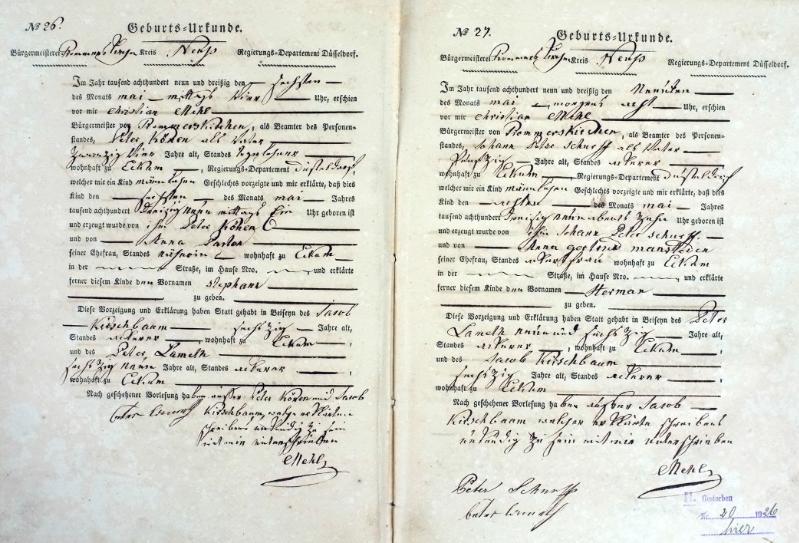 No 26.
Geburts-Urkunde.
Bürgermeisterei Kreis Neuß Regierungs-Departement Düsseldorf.
Im Jahr tausend achthundert neun und dreißig den sechsten
des Monats mai mittags Uhr, erschien
vor mir Christian Mehl
Bürgermeister von Rommerskirchen, als Beamter des Personen-
standes, Peter als Vater
zwanzig vier Jahre alt, Standes
wohnhaft zu Eckum, Regierungs-Departement Düsseldorf,
welcher mir ein Kind männlichen Geschlechts vorzeigte und mir erklärte, daß dies
Kind den sechsten des Monats mai Jahres
tausend achthundert dreizig neun mittags Ein Uhr geboren ist
und erzeugt wurde von ihm Peter
und von Anna
seiner Ehefrau, Standes wohnhaft zu Eckum
in der Straße, im Hause Nro. und erklärte
ferner diesem Kinde den Vornamen stephan
zu geben.
Diese Vorzeigung und Erklärung haben Statt gehabt in Beiseyn des Jacob
Kirschbaum sechszig Jahre alt,
Standes Ackerer, wohnhaft zu Eckum
und des Peter Lameth
sechszig neun Jahre alt, Standes Ackerer
wohnhaft zu Eckum
Nach geschehener Vorlesung haben außer Peter und Jacob
Kirschbaum, welche erklärten
schreibens unkundig zu sein
mit mir unterschrieben
Mehl
No 27.
Geburts-Urkunde.
Bürgermeisterei Kreis Neuß Regierungs-Departement Düsseldorf.
Im Jahr tausend achthundert neun und dreißig den Neunten
des Monats mai morgens acht Uhr, erschien
vor mir Christian Mehl
Bürgermeister von Rommerskirchen, als Beamter des Personen-
standes, Johann Peter Schnoff als Vater
Jahre alt, Standes Ackerer
wohnhaft zu Eckum, Regierungs-Departement Düsseldorf
welcher mir ein Kind männlichen Geschlechts vorzeigte und mir erklärte, daß dies
Kind den achten des Monats mai Jahres
tausend achthundert dreizig neun abends zehn Uhr geboren ist
und erzeugt wurde von ihm Johann Peter Schnoff
und von Anna
seiner Ehefrau, Standes Ackersfrau wohnhaft zu Eckum
in der Straße, im Hause Nro. und erklärte
ferner diesem Kinde den Vornamen Herman
zu geben.
Diese Vorzeigung und Erklärung haben Statt gehabt in Beiseyn des Peter
Lameth neun und sechszig Jahre alt,
Standes Ackerer, wohnhaft zu Eckum
und des Jacob Kirschbaum
sechszig Jahre alt, Standes Ackerer
wohnhaft zu Eckum
Nach geschehener Vorlesung haben außer Jacob
Kirschbaum welcher erklärte schreibens
unkundig zu sein mit mir unterschrieben
Mehl
Peter Schnoff
Gestorben
Nr. 20 1926
hier